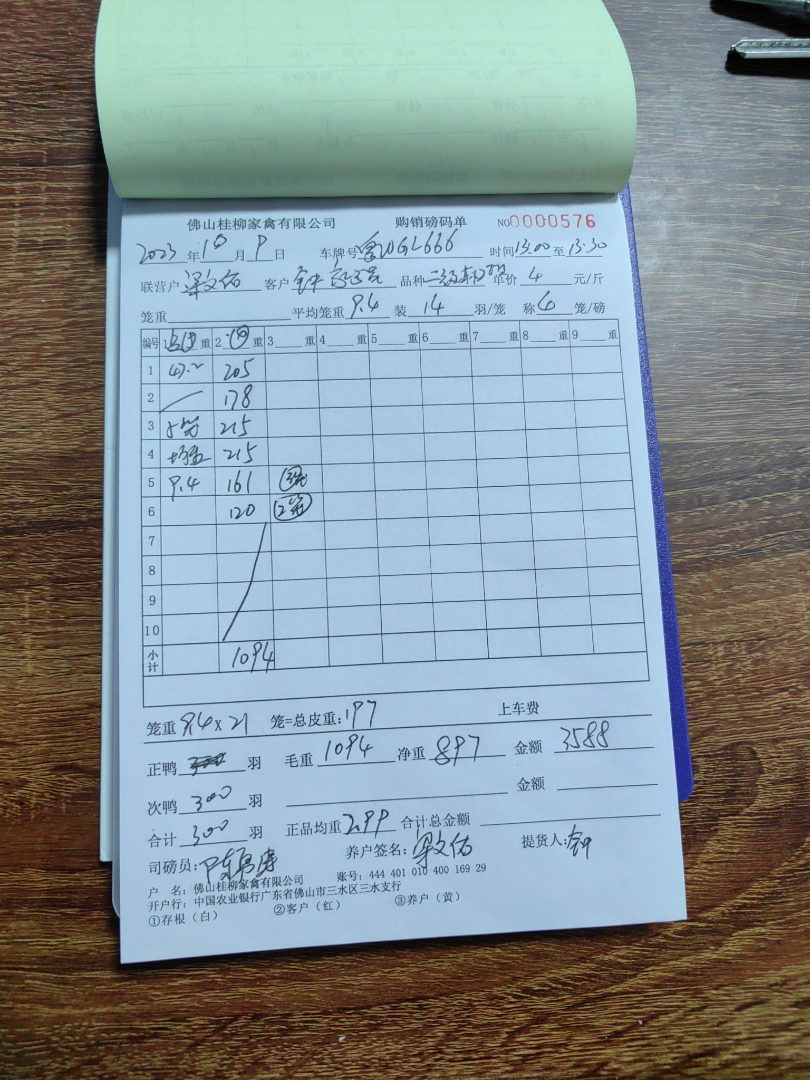 佛山桂柳家禽有限公司 购销磅码单 NO0000576
2023年10月9日 车牌号粤WGL666 时间13:00至13:30
联营户梁文佑 客户钟 品种二级 单价4元/斤
笼重 平均笼重9.4装14羽/笼 称6笼/磅
编号 1重 2重 3重 4重 5重 6重 7重 8重 9重
1 47.2 205
2 178
3 5笼 215
4 215
5 9.4 161 3笼
6 120 2笼
7
8
9
10
小计 1094
笼重9.4x21 笼=总皮重:197 上车费
正鸭 羽 毛重1094净重897金额3588
次鸭300羽 金额
合计300羽 正品均重2.99合计总金额
司磅员: 养户签名:梁文佑 提货人:钟
户 名:佛山桂柳家禽有限公司 账号:444 401 010 400 169 29
开户行:中国农业银行广东省佛山市三水区三水支行
①存根(白) ②客户(红) ③养户(黄)